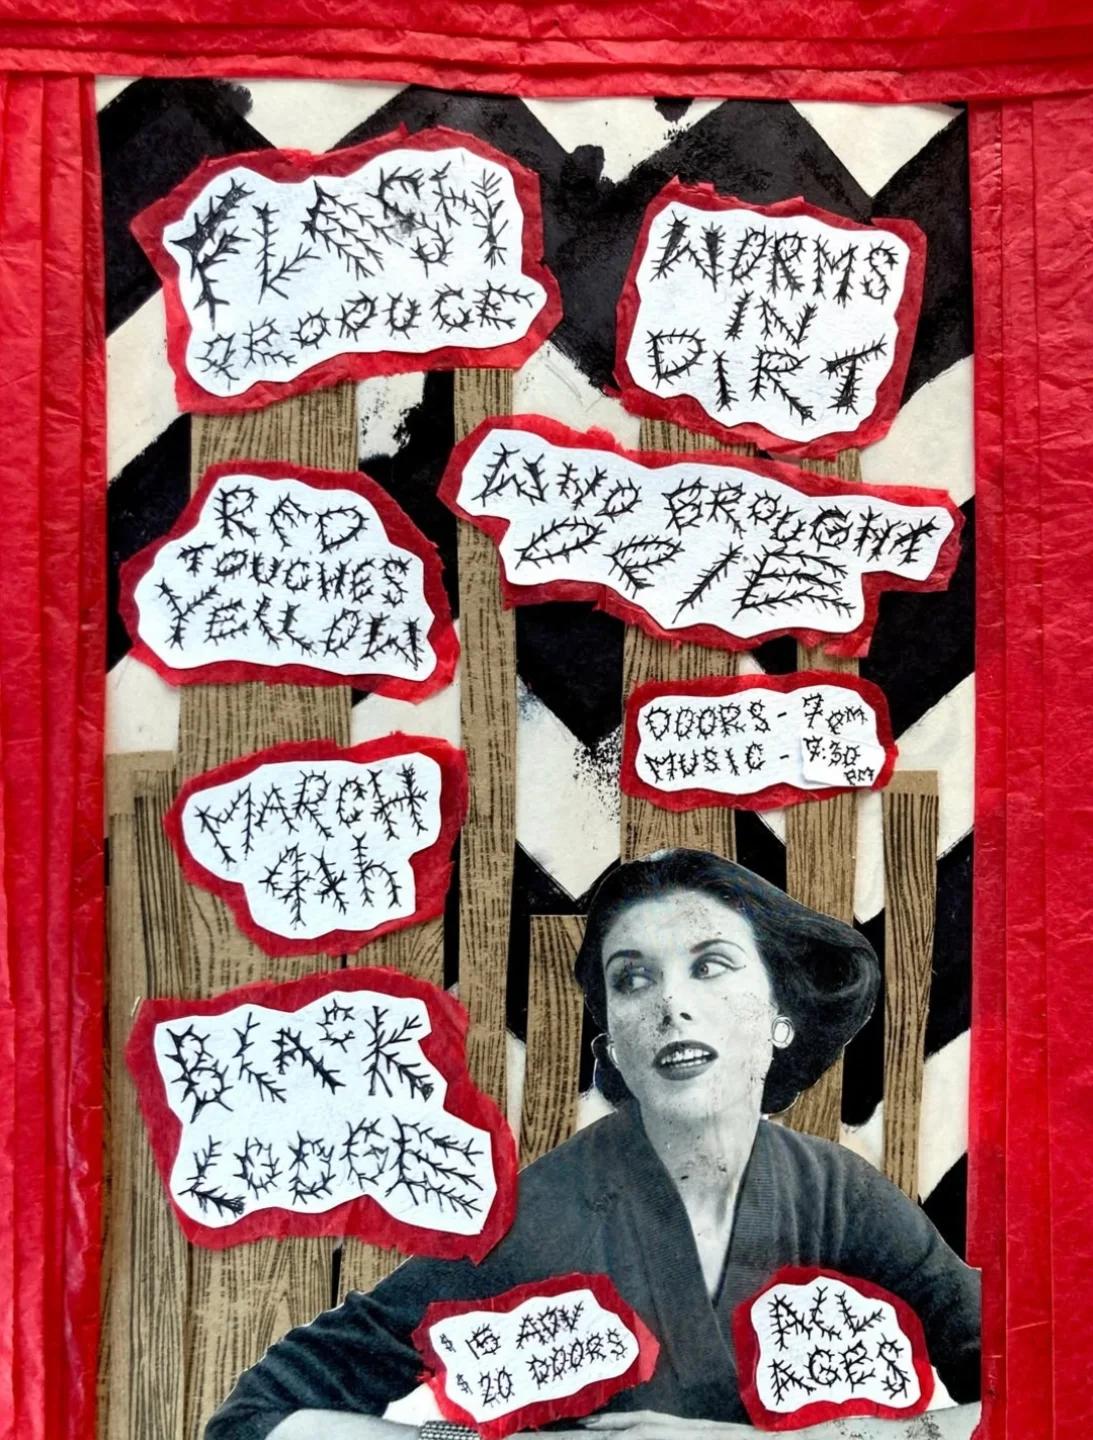 FLESH
PRODUCE
WORMS
IN
DIRT
RED
TOUCHES
YELLOW
WHO BROUGHT
OPIE
DOORS - 7PM
MUSIC - 7:30 PM
MARCH
4th
BLACK
LODGE
$15 ADV
$20 DOORS
ALL
AGES